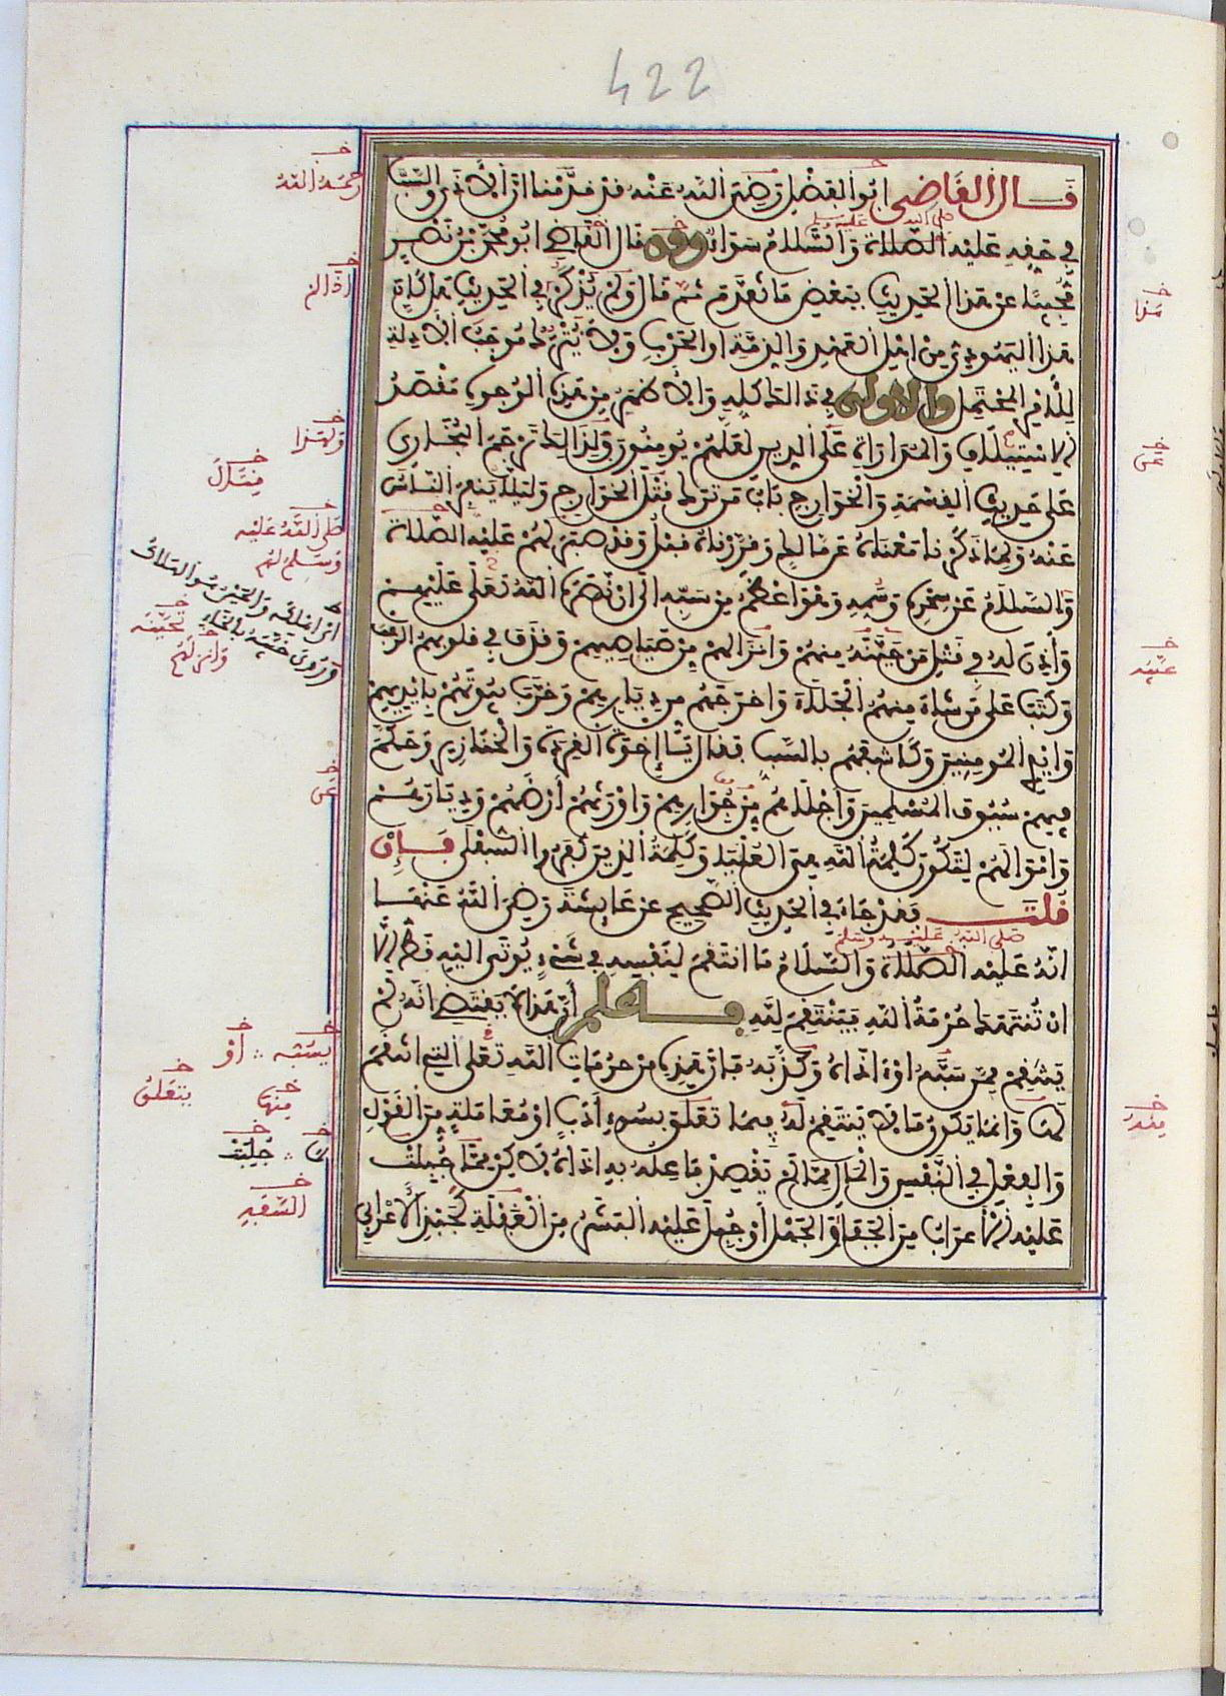 422
قال القاضي ابوا الفضل رضي الله عنه قد قدمنا ان الاذى والسب
في حقه عليه الصلاة والسلام سواء وقد قال القاضي ابو محمد بن نصر
مجيبا عن هذا الحديث ببعض ما تقدم ثم قال ولم يذكر في الحديث هل كان
هذا اليهودي من اهل العهد والذمة او الحرب ولا يترك موجب الادلة
للامر المحتمل والاولى في ذلك كله والاظهر من هذه الوجوه مقصد
الاستيلاف والمداراة على الدين لعلهم يومنون ولذلك ترجم البخاري
على حديث القسمة والخوارج باب من ترك قتل الخوارج وليلا ينفر الناس
عنه ولما ذكرنا معناه عن مالك وقررناه قبل وقد صبر لهم عليه الصلاة
والسلام عن سحره وسمه وهو اعظم من سبه الى ان نصره الله تعلى عليهم
واذن له في قتل من حينه منهم وانزالهم من صياصيهم وقذف في قلوبهم الرعب
وكتب على من شاء منهم الجلاء واخرجهم من ديارهم وخرب بيوتهم بايديهم
وايدي المومنين وكاشفهم بالسب فقال يا اخوة القردة والخنازير وحكم
فيهم سيوف المسلمين واجلاهم من جوارهم واورثهم ارضهم وديارهم
واموالهم لتكون كلمة الله هي العليا وكلمة الذين كفروا السفلى فإن
قلت فقد جاء في الحديث الصحيح عن عايشة رضي الله عنها
صلى الله عليه وسلم
انه عليه الصلاة والسلام ما انتقم لنفسه في شيء يوتى اليه قط الا
ان تنتهك حرمة الله فينتقم لله فاعلم ان هذا لا يقتضي انه لم
ينتقم ممن سبه او اذاه وكذبه فان هذه من حرمات الله تعلى التي انتقم
لها وانما يكون ما لا ينتقم له فيما تعلق بسوء ادب او معاملة من القول
والفعل في النفس والمال مما لم يقصد فاعله به اذاه لاكن مما جبلت
عليه الاعراب من الجفاء والجهل او جبل عليه البشر من الغفلة كجبذ الاعرابي
رحمه الله
اذا لم
هذا
ولهذا
صلى الله عليه
وسلم لهم
وانزلهم
عينه
على
يسبه ∴ او
يتعلق
منها
منه
جبلت
السفه